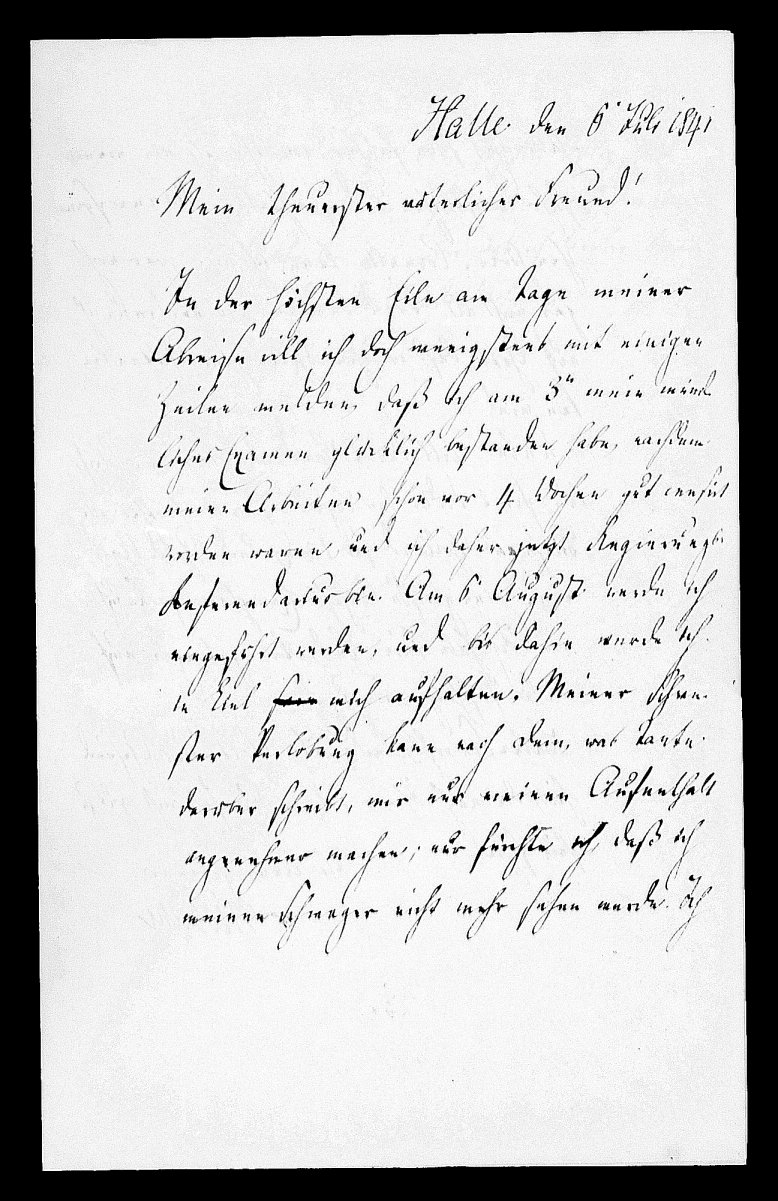 Halle den 6' Juli 1841
Mein theuerster väterlicher Freund!
In der höchsten Eile am Tage meiner
Abreise will ich doch wenigstens mit einigen
Zeilen melden, daß ich am 3n mein münd-
liches Examen glücklich bestanden habe, nachdem
meine Arbeiten schon vor 4 Wochen gut censirt
worden waren und ich daher jetzt Regierungs-
Referendarius bin. Am 6 August werde ich
eingeführt werden, und bis dahin werde ich
in Kiel mich aufhalten. Meiner Schwe-
ster Verlobung kann nach dem, was Tante
darüber schreibt, mir nur meinen Aufenthalt
angenehmer machen; nur fürchte ich, daß ich
meinen Schwager nicht mehr sehen werde. Ich